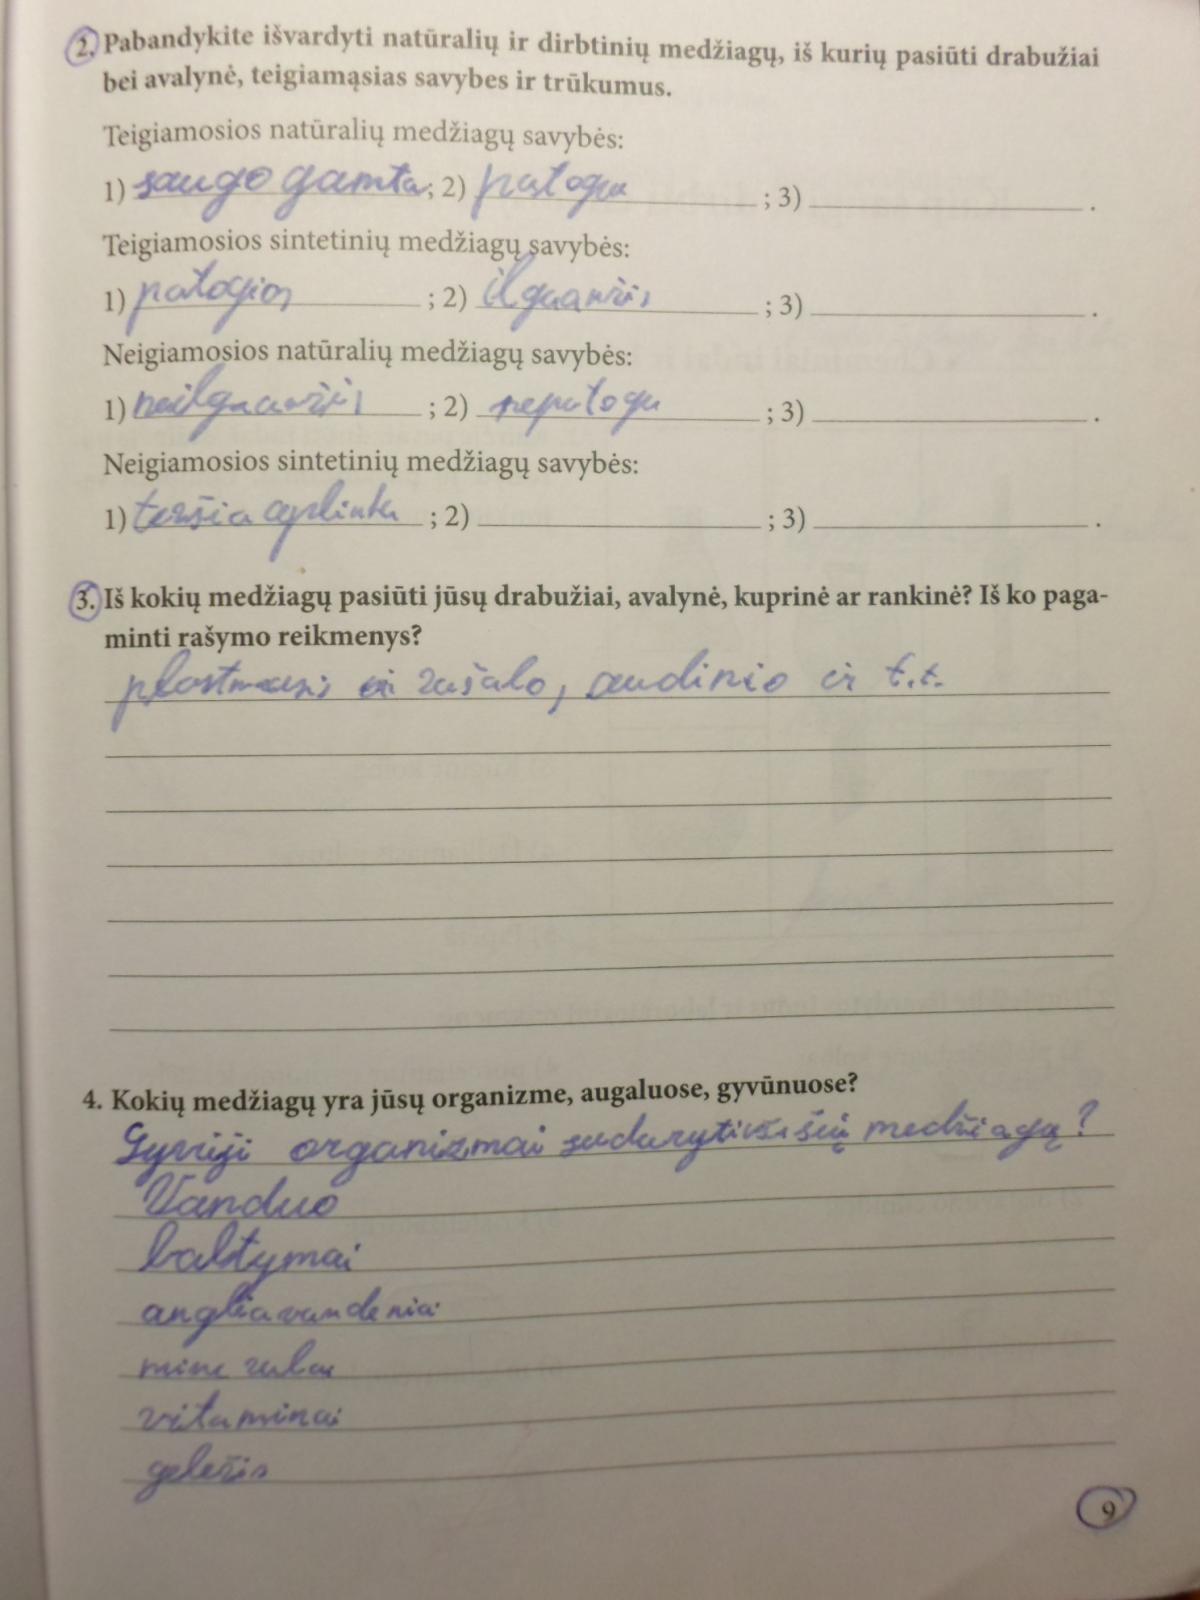 2. Pabandykite išvardyti natūralių ir dirbtinių medžiagų, iš kurių pasiūti drabužiai
bei avalynė, teigiamąsias savybes ir trūkumus.
Teigiamosios natūralių medžiagų savybės:
1) saugo gamta; 2) patogu ; 3) .
Teigiamosios sintetinių medžiagų savybės:
1) patogios ; 2) ilgaamžis ; 3) .
Neigiamosios natūralių medžiagų savybės:
1) neilgaamžiai ; 2) nepatogu ; 3) .
Neigiamosios sintetinių medžiagų savybės:
1) teršia aplinka ; 2) ; 3) .
3. Iš kokių medžiagų pasiūti jūsų drabužiai, avalynė, kuprinė ar rankinė? Iš ko paga-
minti rašymo reikmenys?
plastmasis rašalo, audinio ir t.t.
4. Kokių medžiagų yra jūsų organizme, augaluose, gyvūnuose?
Gyvieji organizmai sudaryti iš šių medžiagų?
Vanduo
baltymai
angliavandeniai
mineralai
vitaminai
geležis
9